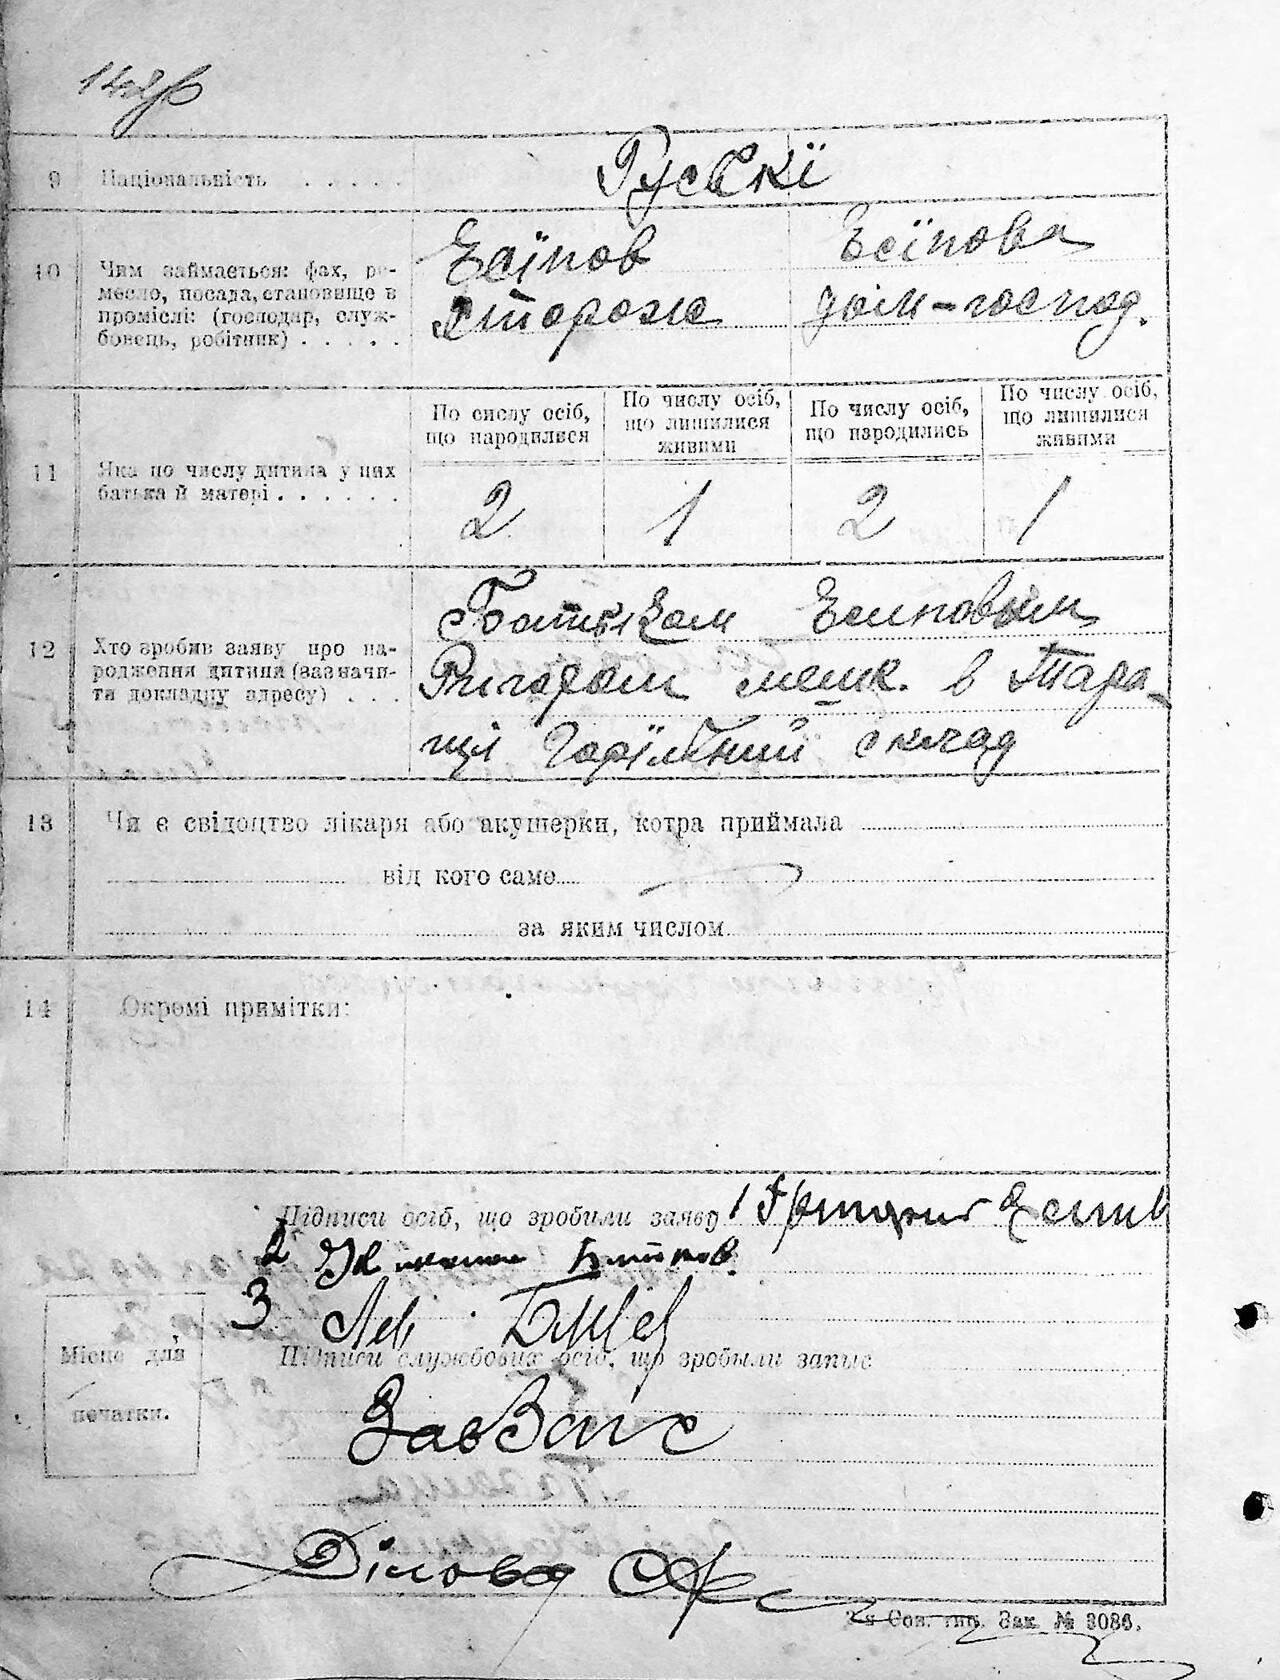 9 Національність . . . . .
Руські
10 Чим займається: фах, ре-
месло, посада, становище в
проміслі: (господар, служ-
бовець, робітник) . . . . .
Есіпов
сторож
Есіпова
дом-господ.
11 Яка по числу дитина у них
батька й матері . . . . . .
По числу осіб,
що народилися
2
По числу осіб,
що лишилися
живими
1
По числу осіб,
що народились
2
По числу осіб,
що лишилися
живими
1
12 Хто зробив заяву про на-
родження дитини (зазначи-
ти докладну адресу) . . .
Батьком Есиповым
Григором мешк. в Тара-
щі Горілчний склад
13 Чи є свідоцтво лікаря або акушерки, котра приймала
від кого саме
за яким числом
14 Окремі примітки:
Підписи осіб, що зробили заяву 1
2
3
Місце для
печатки.
Підписи службових осіб, що зробыли запис
ЗавЗагс
Діловод
Зак. № 3086.